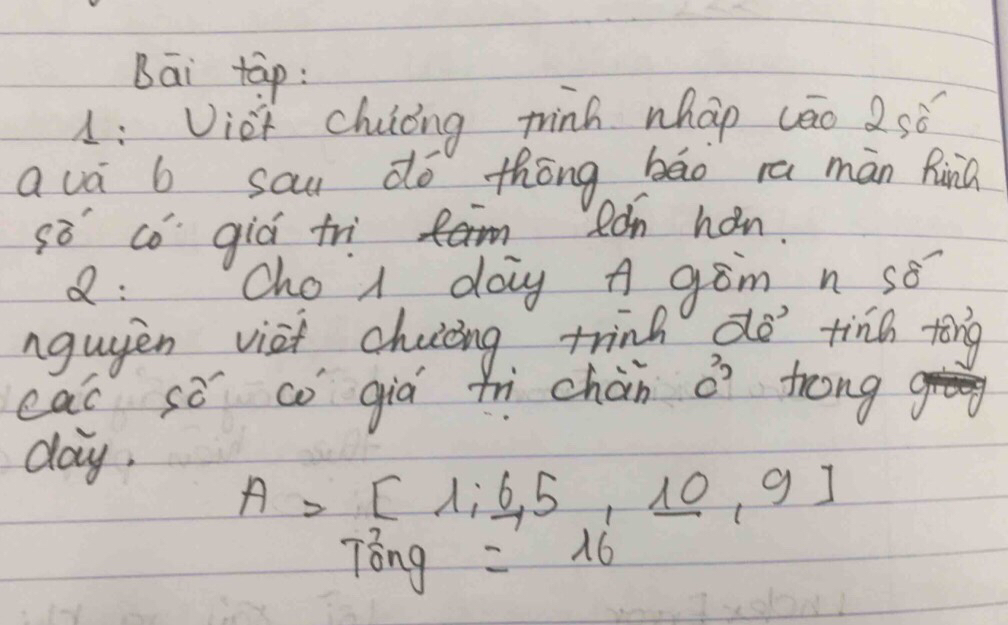 Bài tập:
1: Viết chương trình nhập vào 2 số
a và b sau đó thông báo ra màn hình
số có giá trị lớn hơn.
2: Cho 1 dãy A gồm n số
nguyên viết chương trình để tính tổng
các số có giá trị chẵn ở trong
dãy.
A = [ 1; 6, 5 , 10 , 9 ]
Tổng = 16